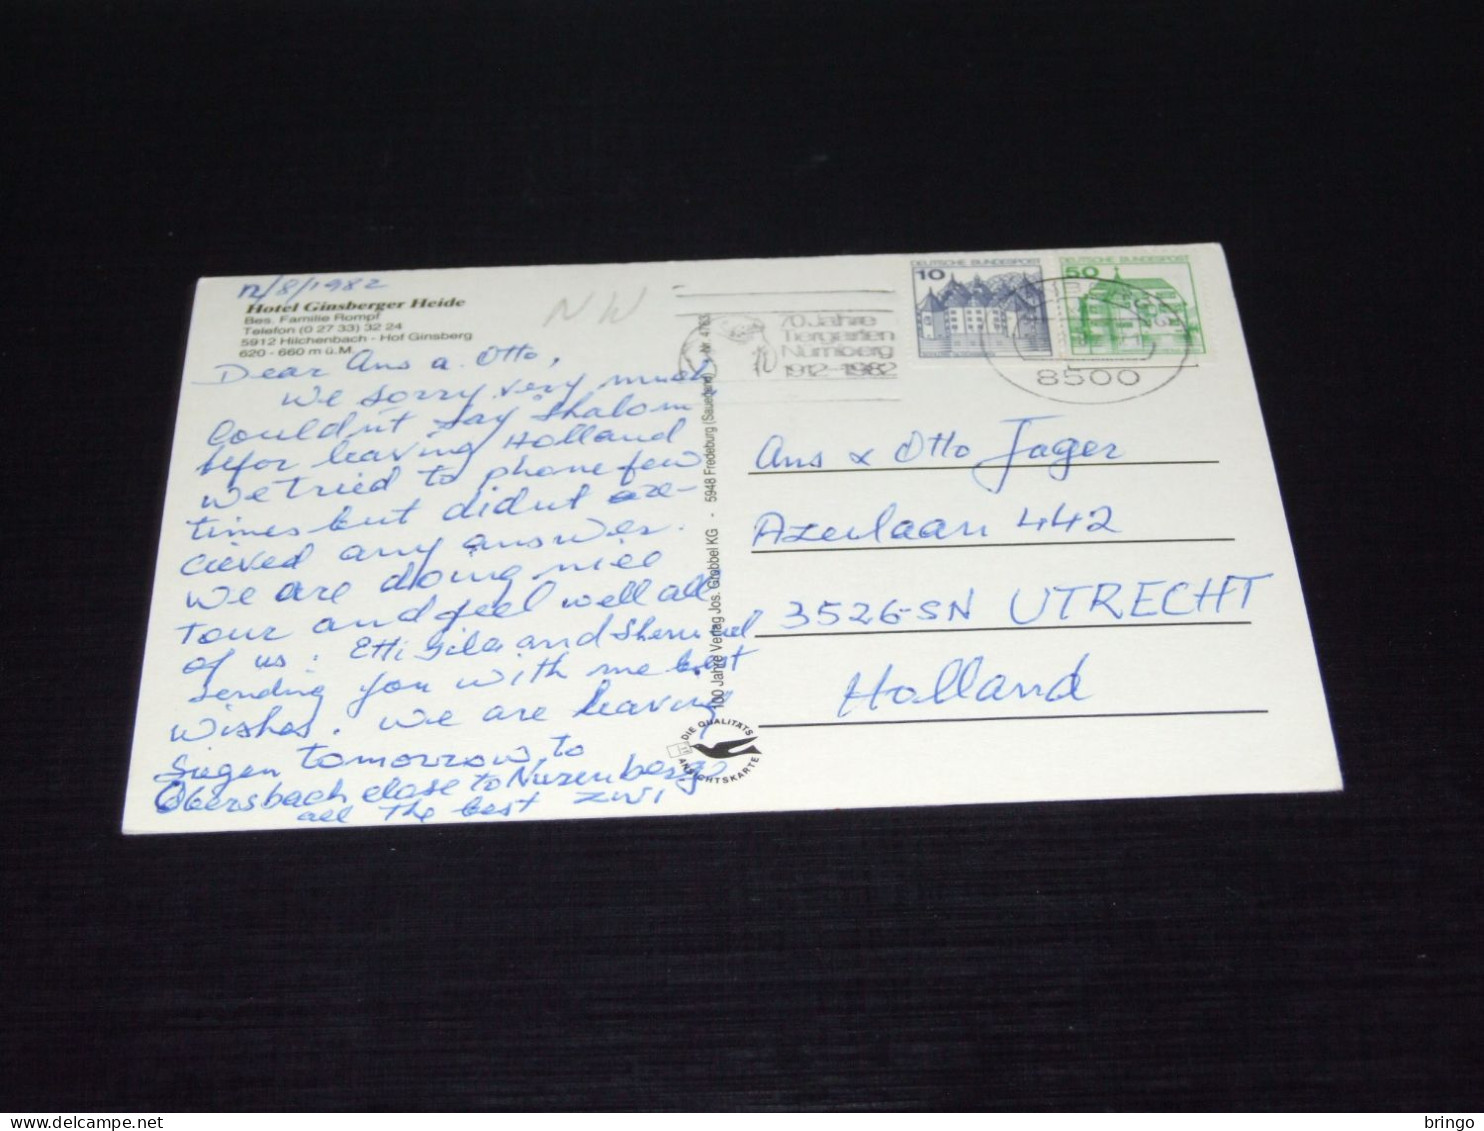 12/8/1982
Hotel Ginsberger Heide
Bes. Familie Rompf
Telefon (0 27 33) 32 24
5912 Hilchenbach - Hof Ginsberg
620 - 660 m ü.M.
NW
Dear Ans a. Otto,
We sorry very much
Couldn't say Shalom
befor leaving Holland
We tried to phone few
times but didnt re-
cieved any answer.
We are doing nice
Tour and feel well all
of us: Etti Gila and
sending you with me best
wishes. We are leaving
Siegen tomorrow to
Obersbach close to Nurenberg
all the best ZWI
100 Jahre Verlag Jos. Grobbel KG - 5948 Fredeburg (Sauerland)
DIE QUALITÄTS
ANSICHTSKARTE
70 Jahre
Tiergarten
Nürnberg
1912-1982
DEUTSCHE BUNDESPOST
10
DEUTSCHE BUNDESPOST
50
8500
Ans & Otto Jager
Azerlaan 442
3526-SN UTRECHT
Holland
bringo